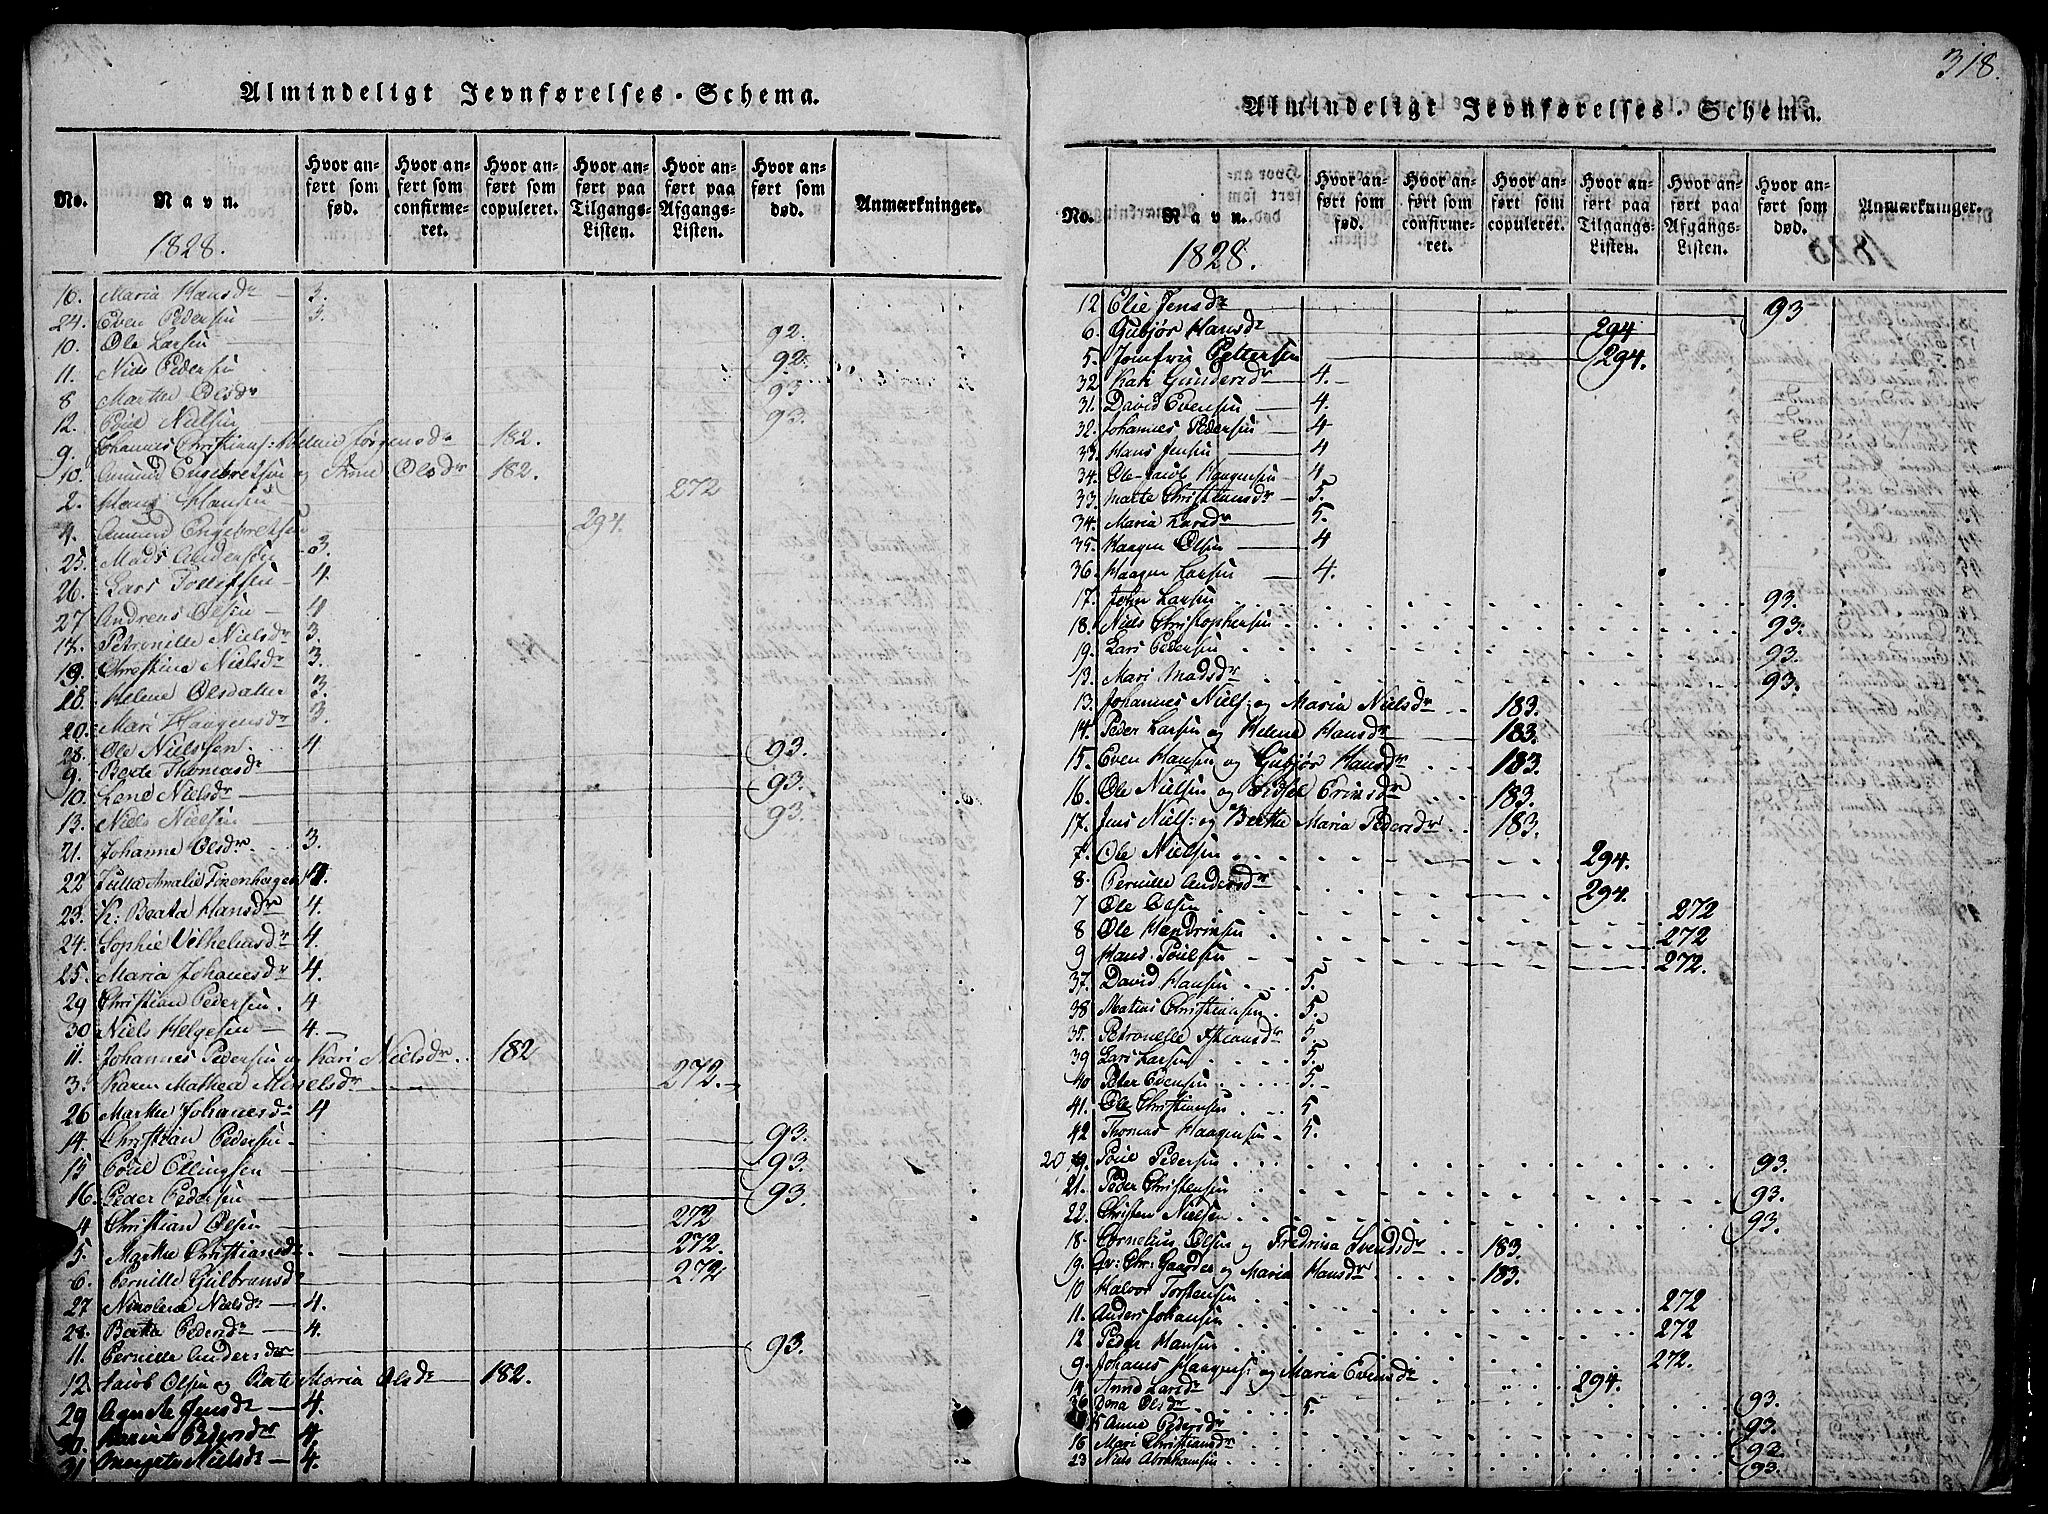 Almindeligt Jevnførelses-Schema.
No. Navn. 1828. Hvor anført som fød. Hvor anført som confirmeret. Hvor anført som copuleret. Hvor anført paa Tilgangs-Listen. Hvor anført paa Afgangs-Listen. Hvor anført som død. Anmærkninger.
16. Maria Hansdr 3.
24. Even Pedersen 3.
10. Ole Larsen 92.
11. Niels Pedersen 92.
8. Marthe Olsdr 93
12. Poul Nielsen 93.
9. Johannes Christians: Helene Jørgensdr 182.
10. Amund Engebretsen og Anne Olsdr 182.
2. Hans Hansen 272
4. Amund Engebretsen 294.
25. Mads Andersen 3.
26. Lars Tollefsen 4.
27 Andreas Olsen 4
17. Petronille Nielsdr 3.
19. Christine Nielsdr 3.
18. Helene Olsdatter 3.
20. Mari Haagensdr 3.
28. Ole Nielssen 4
9. Berte Thomasdr 93.
10. Lene Nielsdr 93.
13. Niels Nielsen 93.
21. Johanne Olsdr 3.
22 Julla Amalie 4.
23. K: Beata Hansdr 4.
24. Sophie Vilhelmsdr 4.
25. Maria Johanesdr 4.
29 Christian Pedersen. 4
30 Niels Helgesen 4.
11. Johannes Pedersen og Kari Nielsdr. 182
3. Karen Mathea 272.
26 Marthe Johanesdr 4
14. Christian Pedersen 93.
15 Poul Ellingsen 93.
16. Peder Pedersen 93.
4 Christian Olsen 272
5. Marthe Christiansdr. 272.
6. Pernille Gulbransdr 272
27 Nicoline Nielsdr 4.
28. Berthe Pedersdr 4.
11. Pernille Andersdr 93.
12. Jacob Olsen og Berte Maria Olsdr 182.
29 Agnethe Jensdr 4.
30. Karine Pedersdr 4
31 Nielsdr 4.
318.
Almindeligt Jevnførelses-Schema.
No. Navn. 1828. Hvor anført som fød. Hvor anført som confirmeret. Hvor anført som copuleret. Hvor anført paa Tilgangs-Listen. Hvor anført paa Afgangs-Listen. Hvor anført som død. Anmærkninger.
12 Elie Jensdr 93
6. Gubjør Hansdr 294
5. Jomfru Pettersen 294.
32 Kari Gundersdr 4.
31. David Evensen 4.
32. Johannes Pedersen 4
33. Hans Jensen 4
34. Ole Jacob Haagensen 4
33. Marte Christiansdr 5.
34. Maria Larsdr 5.
35. Haagen Olsen 4
36. Haagen Larsen 4.
17. John Larsen 93.
18. Niels Christophersen 93.
19. Lars Pedersen 93
13. Mari Madsdr 93.
13. Johannes Niels: og Maria Nielsdr 183.
14. Peder Larsen og Helene Hansdr 183.
15. Even Hansen og Gubjør Hansdr 183.
16. Ole Nielsen og Sidsel 183.
17. Jens Niels: og Berthe Maria Pedersdr 183.
7. Ole Nielsen 294.
8. Pernille Andersdr 294.
7 Ole Olsen 272
8 Ole Hendrinsen 272
9 Hans Poulsen 272.
37. David Hansen 5.
38 Matius Christiansen 5.
35. Petronelle Christiansdr 5.
39 Lars Larsen 5.
40 Peter Evensen 5.
41. Ole Christiansen 5
42 Thomas Haagensen 5.
20 Poul Pedersen 93.
21. Peder Christensen 93.
22. Christen Nielsen 93.
18 Cornelius Olsen og Fredrina Svendsdr 183.
19. Chr: Gaarder og Maria Hansdr 183.
10 Halvor Torstensen 272
11. Anders Johansen 272
12 Peder Hansen 272.
9. Johanes Haagens: og Maria Evensdr 294.
14 Anne Larsdr 93.
36 Dora Olsdr 5.
15 Anne Pedersdr 93.
16 Mari Christiansdr 92
23 Niels Abrahamsen 93.